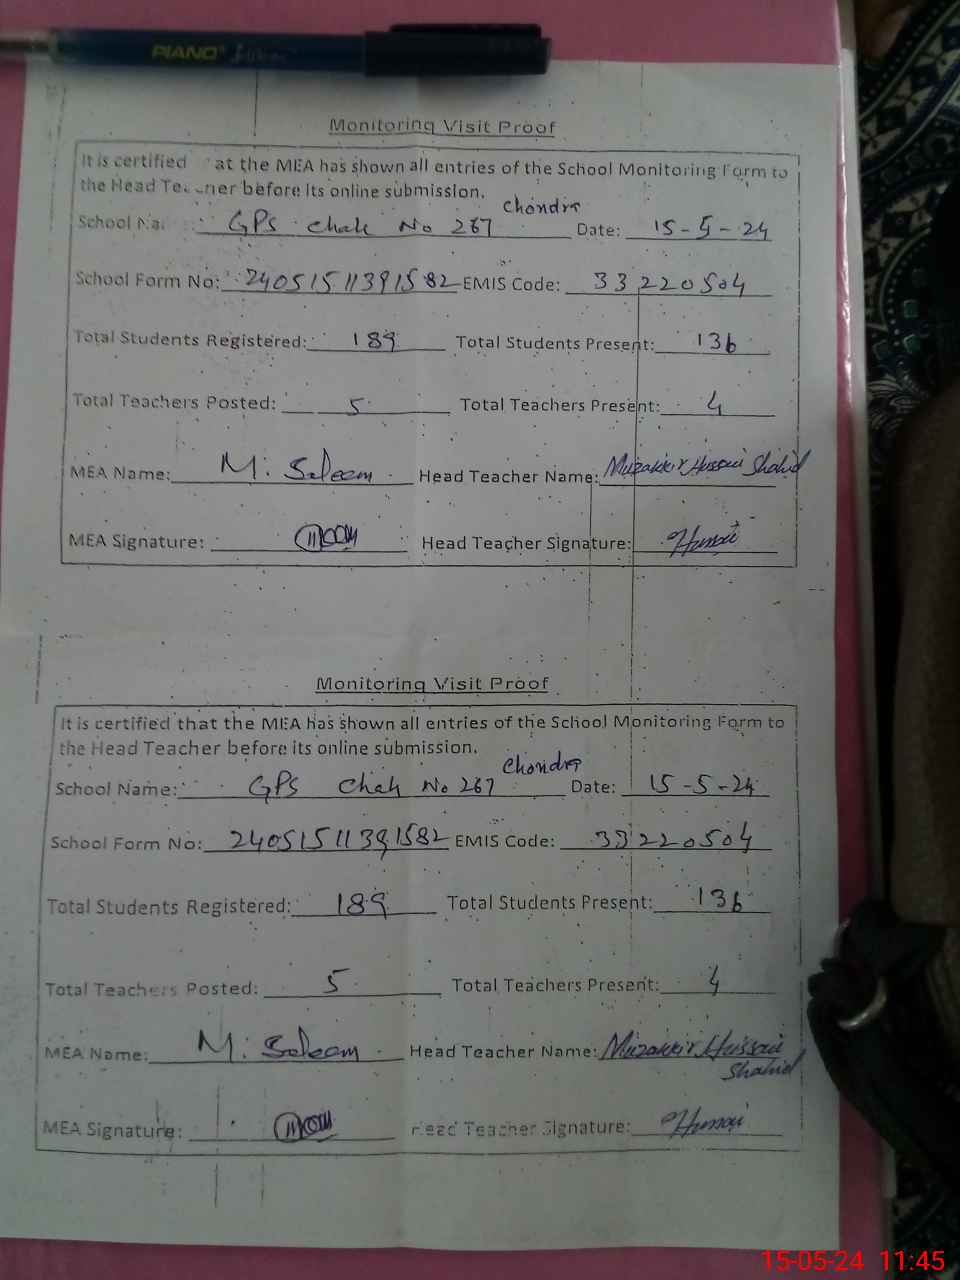 PIANO
Monitoring Visit Proof
It is certified at the MEA has shown all entries of the School Monitoring Form to
the Head Teacher before its online submission.
School Na: GPS Chak No 267 Chondra Date: 15-5-24
School Form No: 24051511391582 EMIS Code: 33220504
Total Students Registered: 189 Total Students Present: 136
Total Teachers Posted: 5 Total Teachers Present: 4
MEA Name: M. Saleem Head Teacher Name: Muzakkir Hussain Shahid
MEA Signature: Head Teacher Signature:
Monitoring Visit Proof
It is certified that the MEA has shown all entries of the School Monitoring Form to
the Head Teacher before its online submission.
School Name: GPS Chak No 267 Chondra Date: 15-5-24
School Form No: 24051511391582 EMIS Code: 33220504
Total Students Registered: 189 Total Students Present: 136
Total Teachers Posted: 5 Total Teachers Present: 4
MEA Name: M. Saleem Head Teacher Name: Muzakkir Hussain
Shahid
MEA Signature: Head Teacher Signature:
15-05-24 11:45